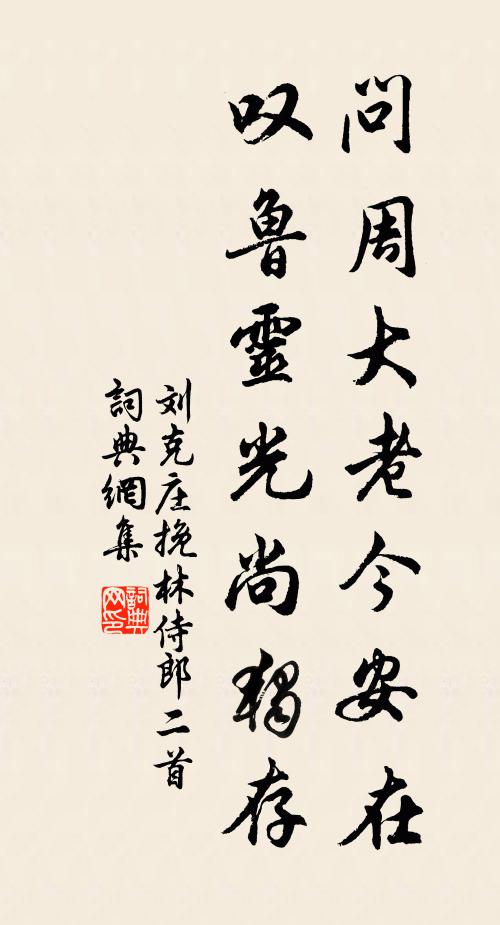 问周大老今安在
叹鲁靈光尚独存
刘克庄挽林侍郎二首
詞典網集
詞典网印